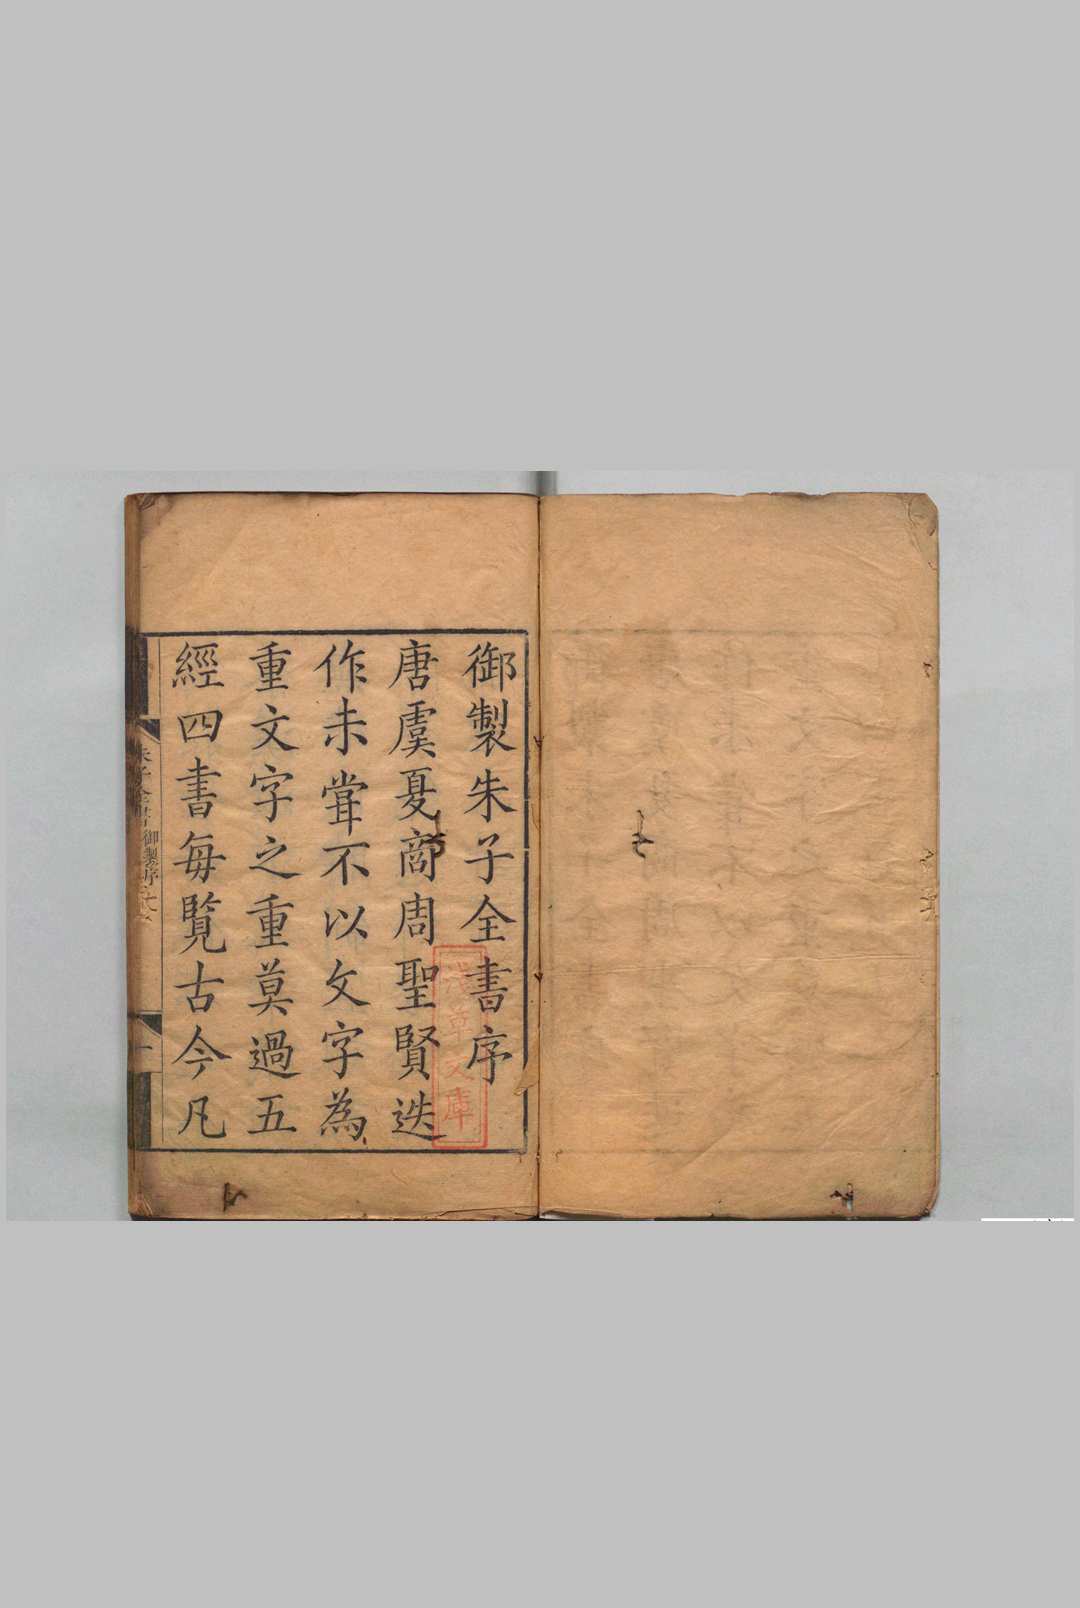 御製朱子全書序
唐虞夏商周聖賢迭
作未嘗不以文字為
重文字之重莫過五
經四書每覽古今凡
朱子全書御製序
一
淺草文庫